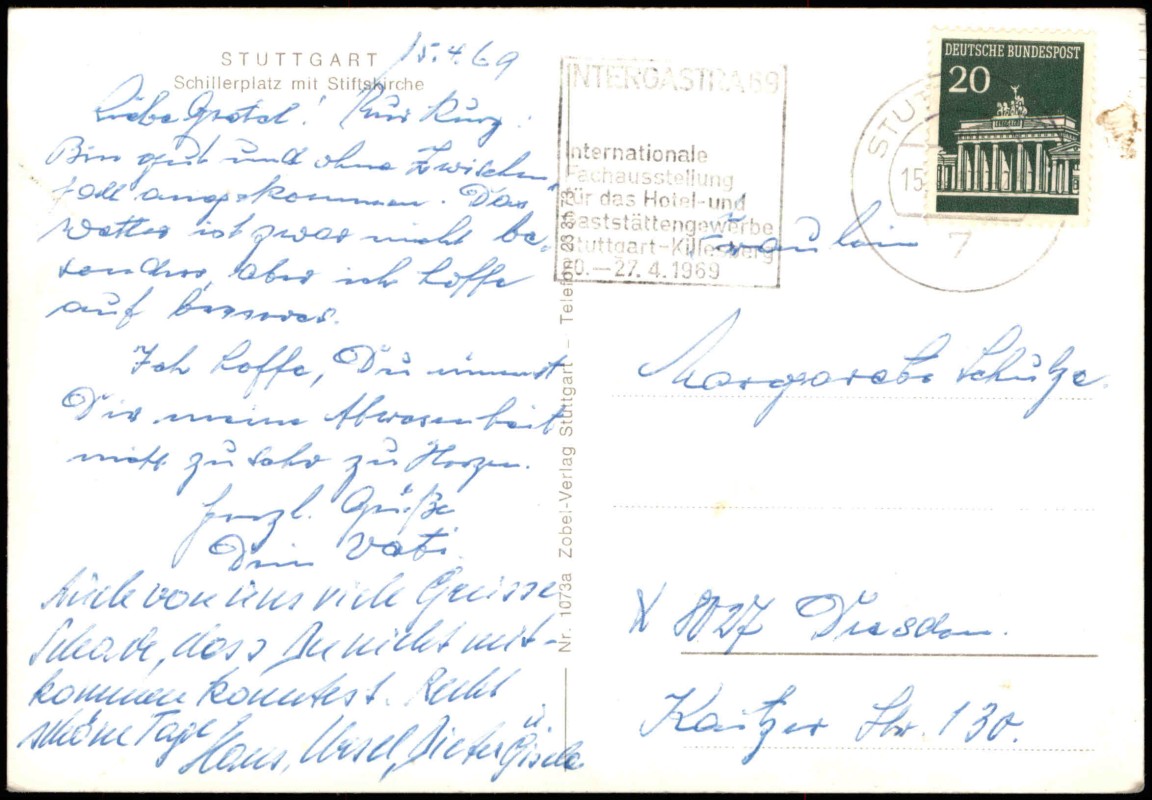 STUTTGART
Schillerplatz mit Stiftskirche
15.4.69
Liebe Gretel!
Bin gut und ohne Zwischen-
fall angekommen. Das
Wetter ist zwar nicht be-
sonders, aber ich hoffe
auf besseres.
Ich hoffe, Du nimmst
Dir meine Abwesenheit
nicht zu sehr zu Herzen.
Herzl. Grüße
Dein Vati.
Auch von uns viele Grüsse
Schade, dass Du nicht mit-
kommen konntest. Recht
schöne Tage
Hans, Ursel, Dieter u. Gisela
Nr. 1073a Zobel-Verlag Stuttgart – Telefon 23 20 73
INTERGASTRA 69
Internationale
Fachausstellung
für das Hotel- und
Gaststättengewerbe
Stuttgart-Killesberg
20.–27.4.1969
STU
15.
7
DEUTSCHE BUNDESPOST
20
Fräulein
Margarete Schulze.
X 8027 Dresden.
Kaitzer Str. 130.